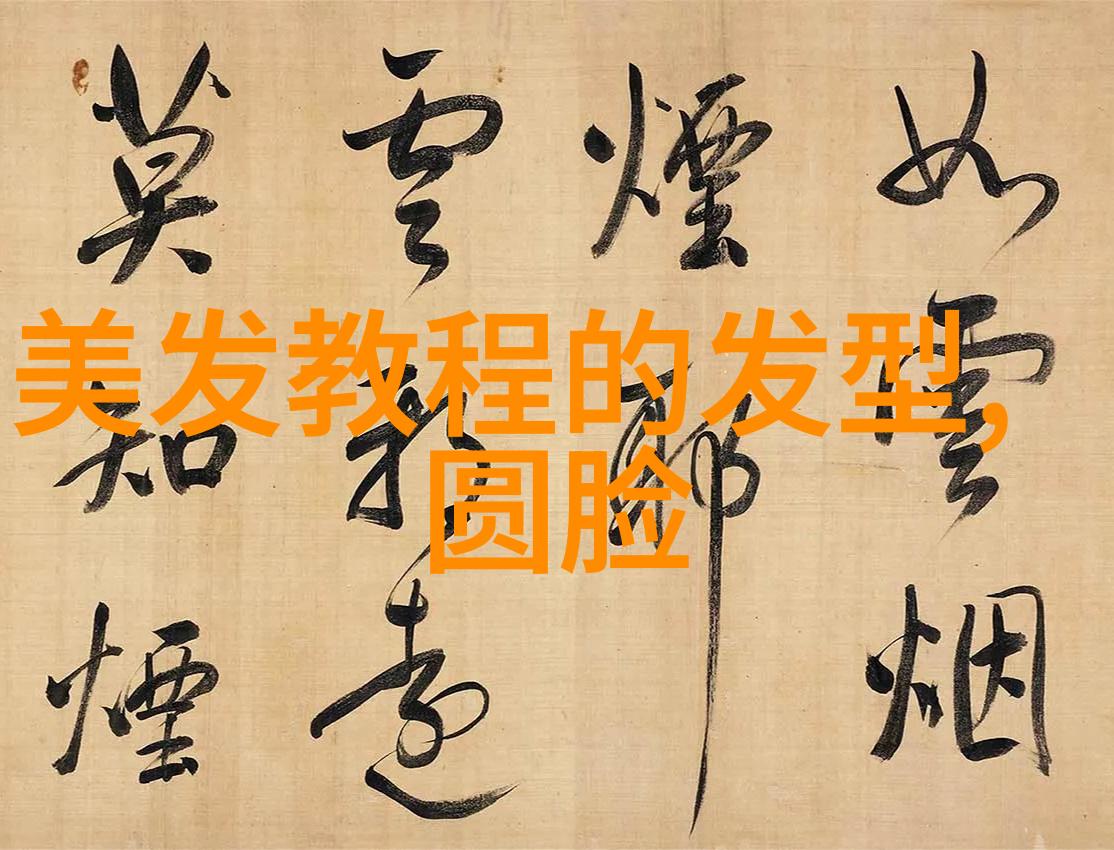 美发教程的发型,
圆脸
如雲烟
煙耶
雲遠
莫知煙